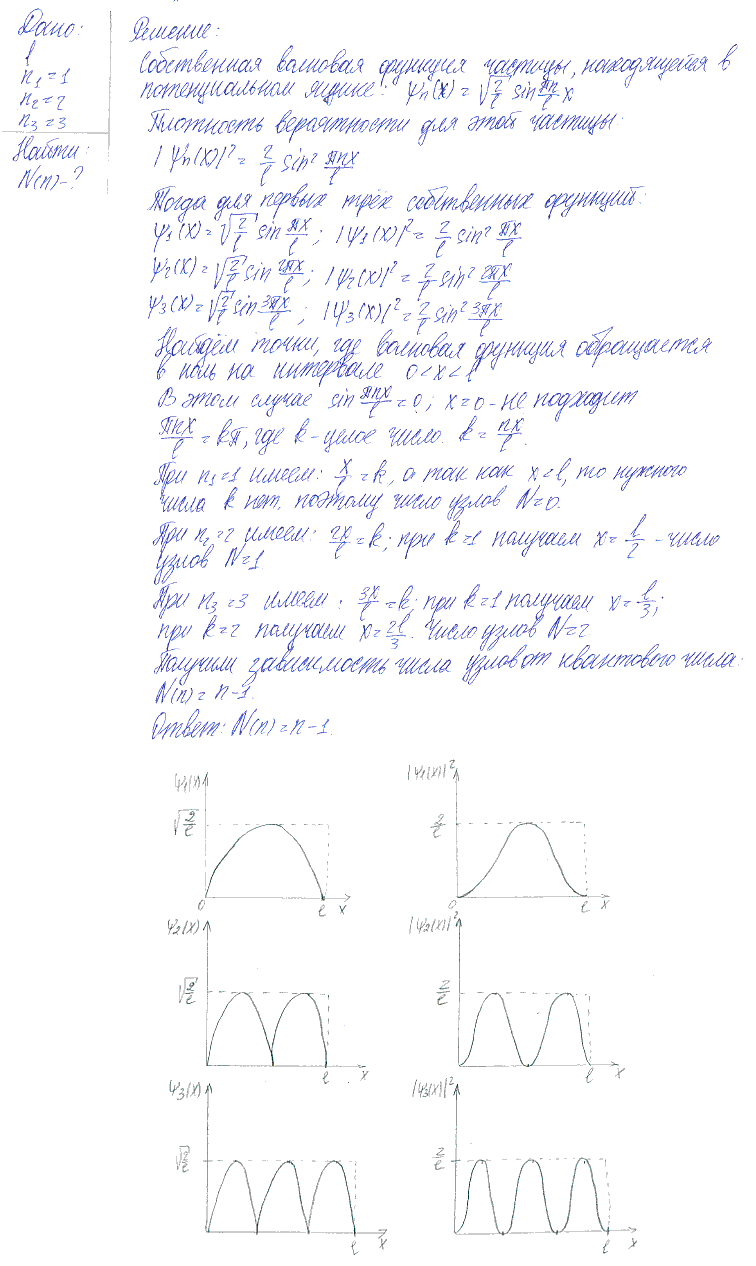 Дано:
l
n₁=1
n₂=2
n₃=3
Найти:
N(n)-?
Решение:
Собственная волновая функция частицы, находящейся в
потенциальном ящике: ψn(x) = √(2/l) sin (πn/l) x
Плотность вероятности для этой частицы:
|ψn(x)|² = 2/l sin² πnx/l
Тогда для первых трёх собственных функций:
ψ₁(x) = √(2/l) sin πx/l ; |ψ₁(x)|² = 2/l sin² πx/l
ψ₂(x) = √(2/l) sin 2πx/l ; |ψ₂(x)|² = 2/l sin² 2πx/l
ψ₃(x) = √(2/l) sin 3πx/l ; |ψ₃(x)|² = 2/l sin² 3πx/l
Найдём точки, где волновая функция обращается
в ноль на интервале 0<x<l
В этом случае sin πnx/l = 0; x=0 - не подходит
πnx/l = kπ, где k - целое число. k = nx/l.
При n₁=1 имеем: x/l = k, а так как x<l, то нужного
числа k нет, поэтому число узлов N=0.
При n₂=2 имеем: 2x/l = k; при k=1 получаем x = l/2 - число
узлов N=1
При n₃=3 имеем: 3x/l = k; при k=1 получаем x = l/3;
при k=2 получаем x = 2l/3. Число узлов N=2
Получили зависимость числа узлов от квантового числа:
N(n) = n-1.
Ответ: N(n) = n-1.
ψ₁(x)
√(2/l)
0
l
x
|ψ₁(x)|²
2/l
0
l
x
ψ₂(x)
√(2/l)
l
x
|ψ₂(x)|²
2/l
l
x
ψ₃(x)
√(2/l)
l
x
|ψ₃(x)|²
2/l
l
x